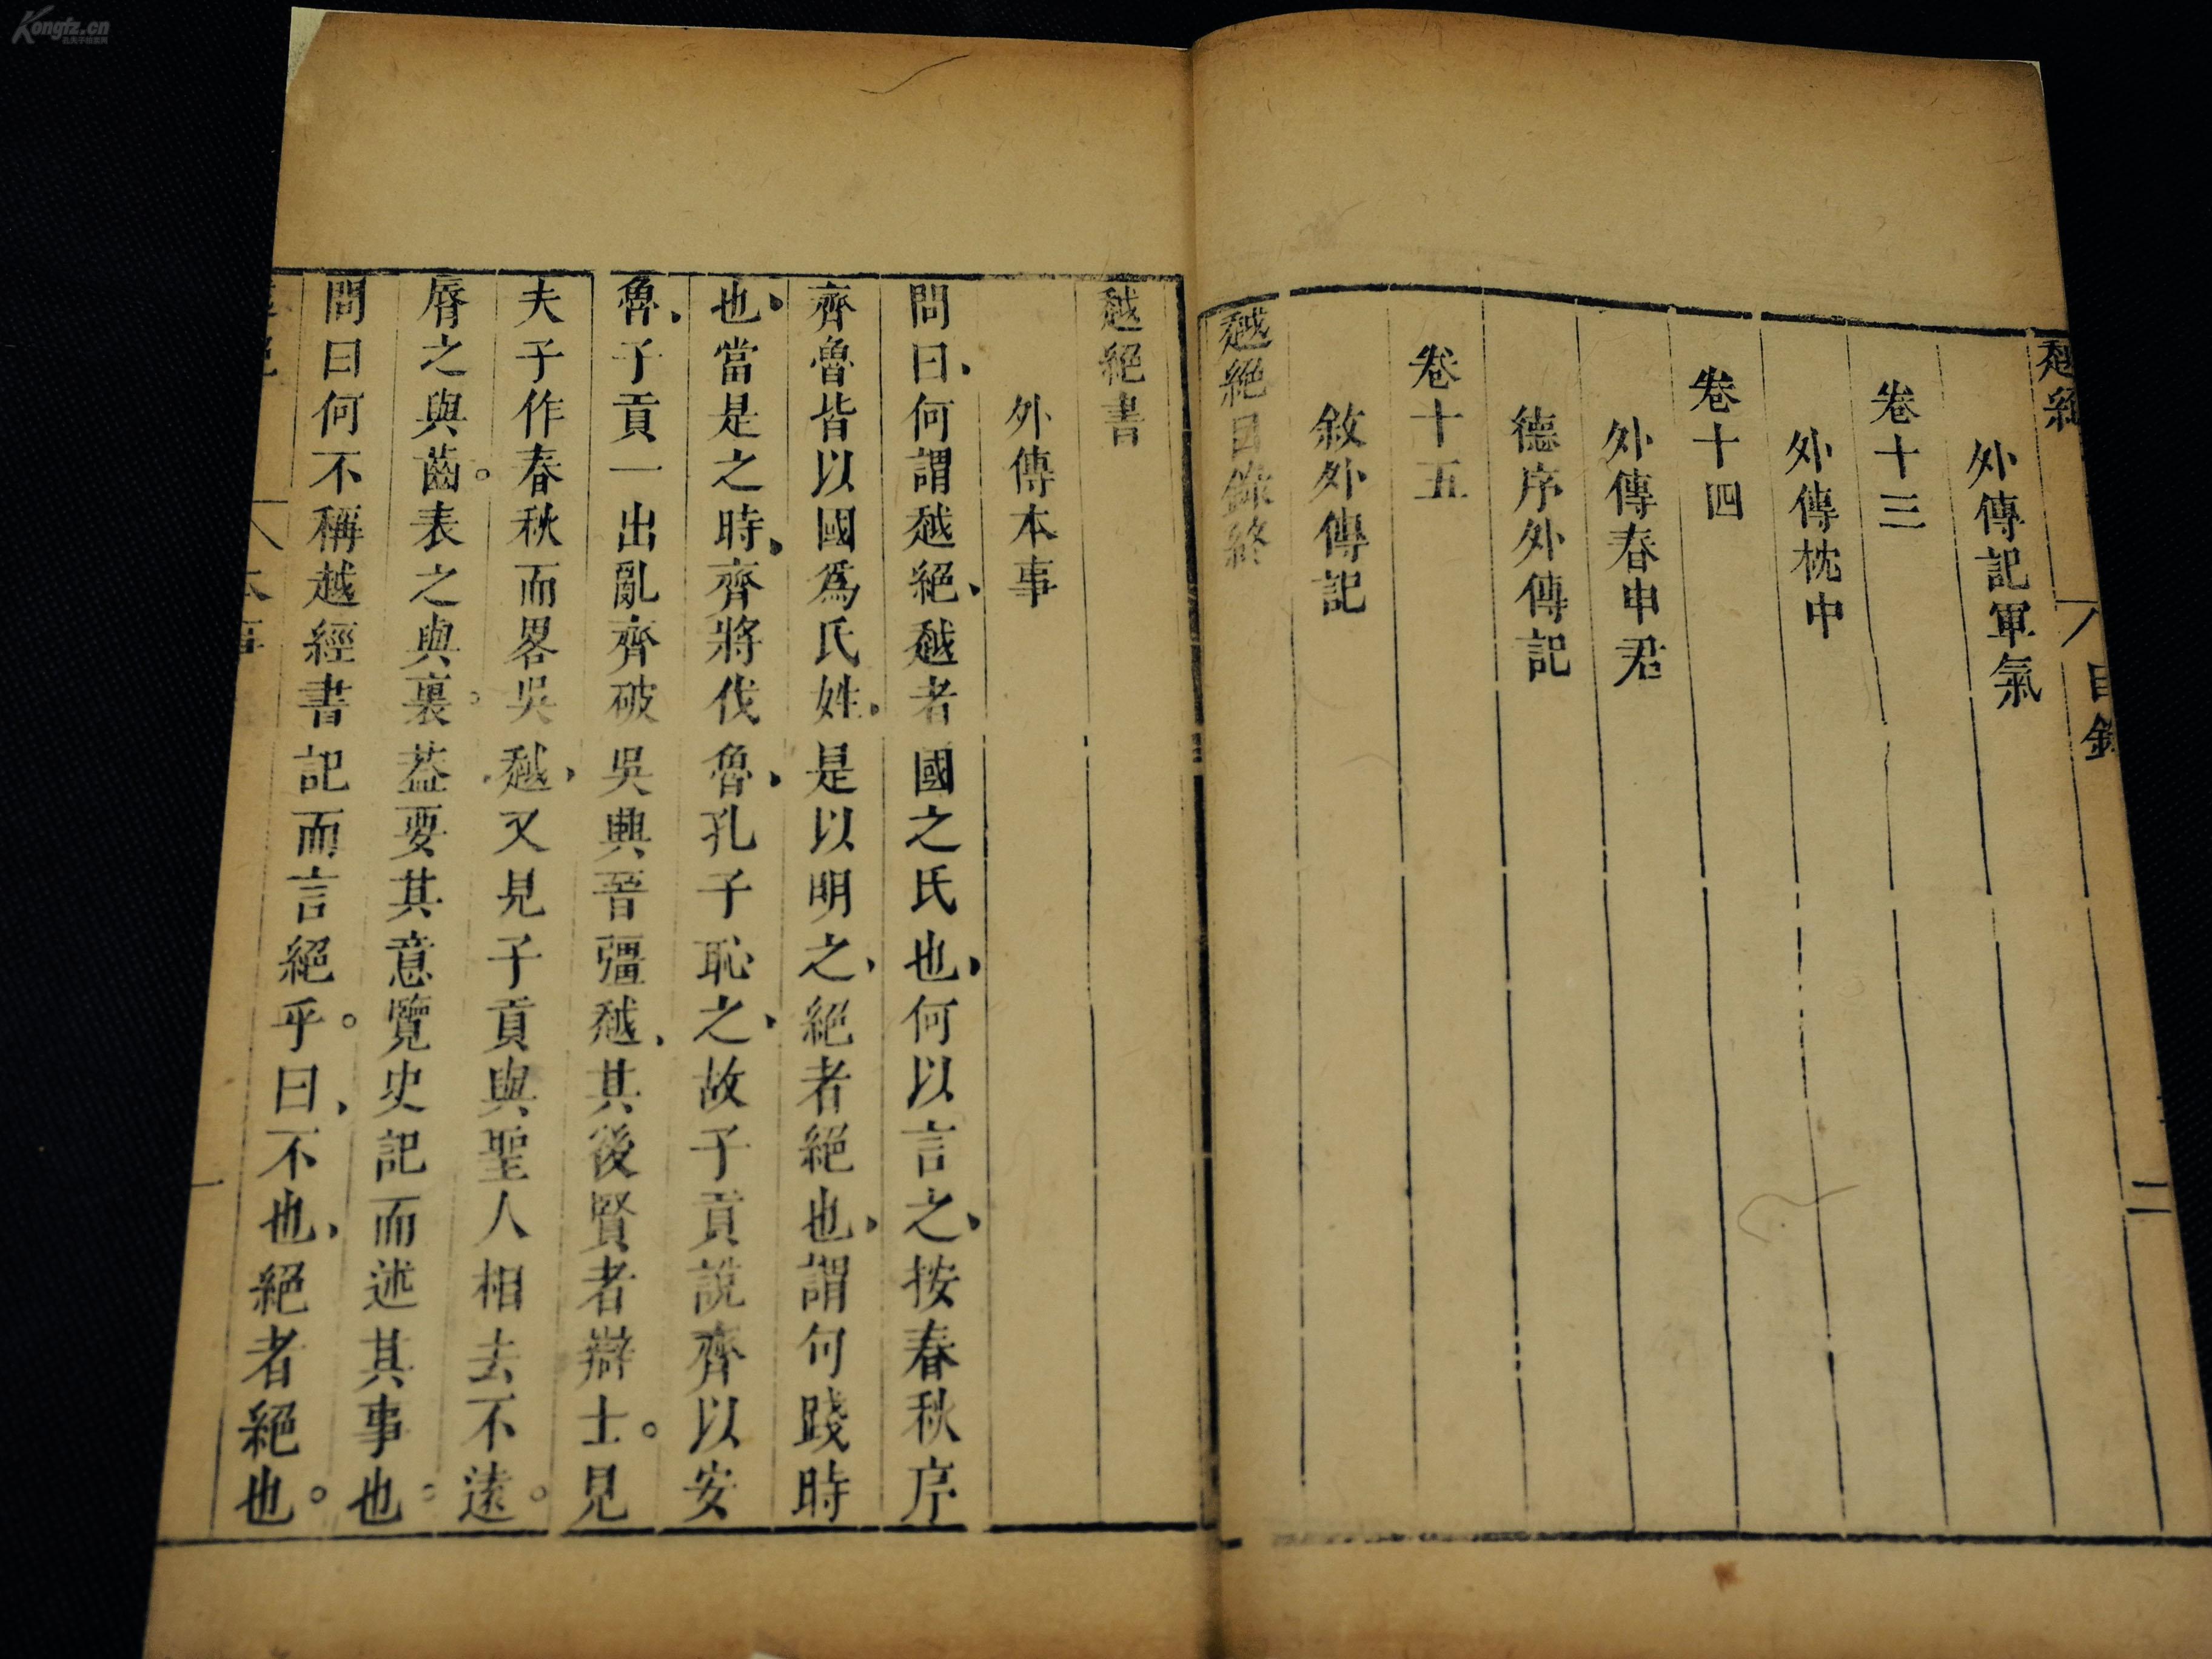 Kongfz.cn
越絕
目錄
二
外傳記軍氣
卷十三
外傳枕中
卷十四
外傳春申君
德序外傳記
卷十五
敘外傳記
越絕目錄終
越絕書
外傳本事
問曰、何謂越絕、越者國之氏也、何以言之、按春秋序
齊魯皆以國爲氏姓。是以明之、絕者絕也、謂句踐時
也、當是之時、齊將伐魯、孔子恥之、故子貢說齊以安
魯、子貢一出亂齊破吳興晉彊越、其後賢者辯士。見
夫子作春秋而畧吳越、又見子貢與聖人相去不遠。
脣之與齒。表之與裏。葢要其意覽史記而述其事也。
問曰何不稱越經書記而言絕乎。曰、不也、絕者絕也。
本事
一